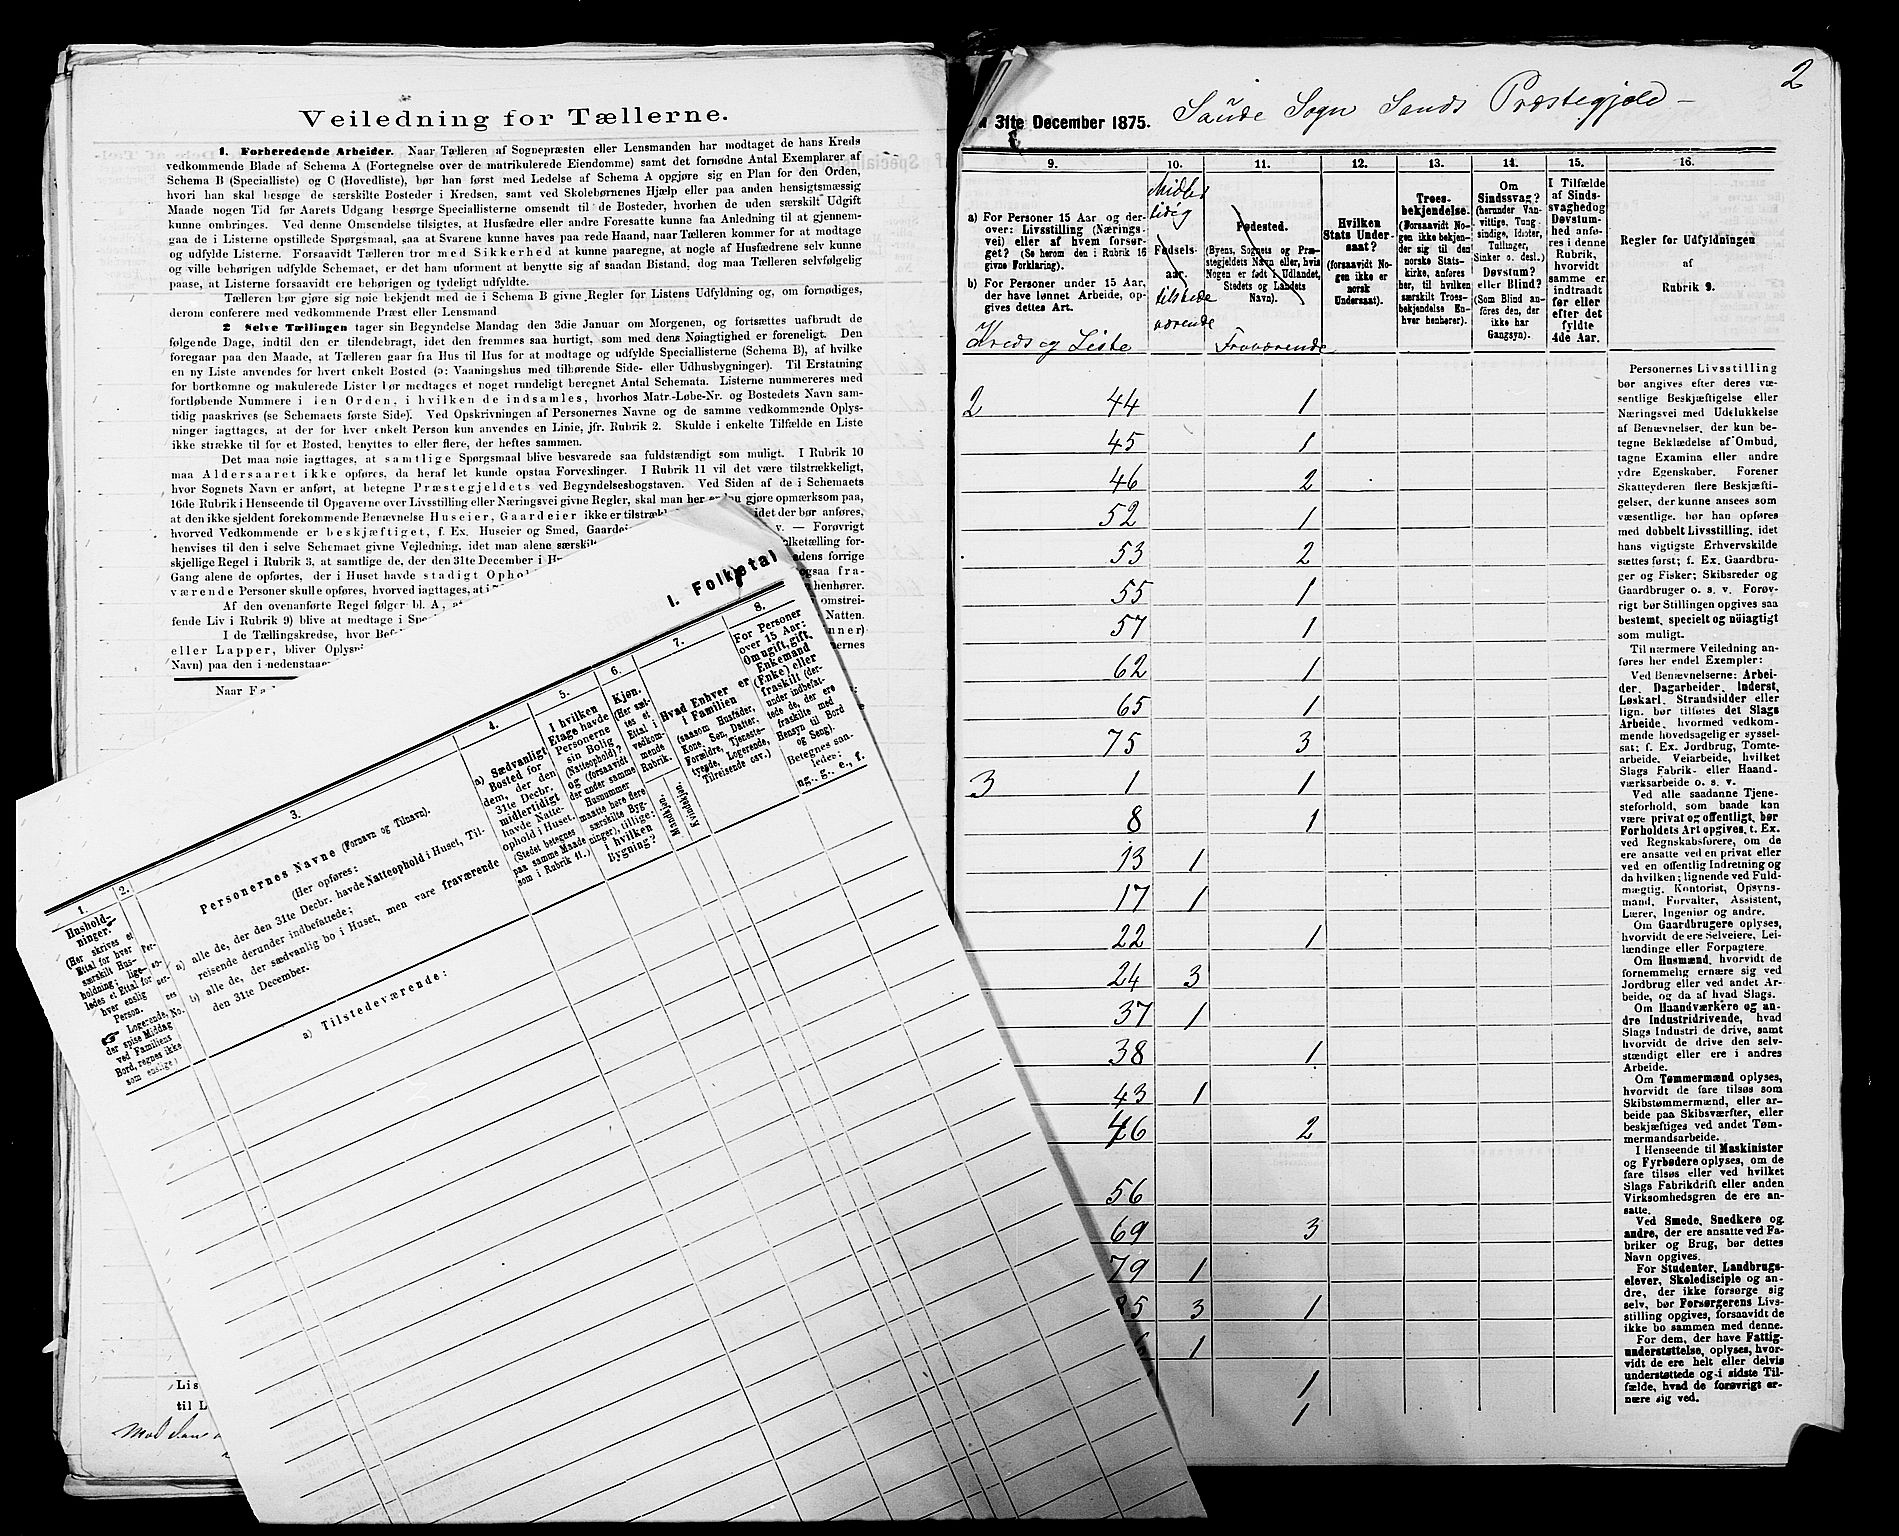 Veiledning for Tællerne.
1. Forberedende Arbeider. Naar Tælleren af Sognepræsten eller Lensmanden har modtaget de hans Kreds
vedkommende Blade af Schema A (Fortegnelse over de matrikulerede Eiendomme) samt det fornødne Antal Exemplarer af
Schema B (Specialliste) og C (Hovedliste), bør han først med Ledelse af Schema A opgjøre sig en Plan for den Orden,
hvori han skal besøge de særskilte Bosteder i Kredsen, samt ved Skolebørnenes Hjælp eller paa anden hensigtsmæssig
Maade nogen Tid før Aarets Udgang besørge Speciallisterne omsendt til de Bosteder, hvorhen de uden særskilt Udgift
kunne ombringes. Ved denne Omsendelse tilsigtes, at Husfædre eller andre Foresatte kunne faa Anledning til at gjennem-
gaa de i Listerne opstillede Spørgsmaal, saa at Svarene kunne haves paa rede Haand, naar Tælleren kommer for at modtage
og udfylde Listerne. Forsaavidt Tælleren tror med Sikkerhed at kunne paaregne, at nogle af Husfædrene selv kunne
og ville behørigen udfylde Schemaet, er det ham uforment at benytte sig af saadan Bistand, dog maa Tælleren selvfølgelig
paase, at Listerne forsaavidt ere behørigen og tydeligt udfyldte.
Tælleren bør gjøre sig nøie bekjendt med de i Schema B givne Regler for Listens Udfyldning og, om fornødiges,
derom conferere med vedkommende Præst eller Lensmand
2 Selve Tællingen tager sin Begyndelse Mandag den 3die Januar om Morgenen, og fortsættes uafbrudt de
følgende Dage, indtil den er tilendebragt, idet den fremmes saa hurtigt, som med dens Nøiagtighed er foreneligt. Den
foregaar paa den Maade, at Tælleren gaar fra Hus til Hus for at modtage og udfylde Speciallisterne (Schema B), af hvilke
en ny Liste anvendes for hvert enkelt Bosted (ɔ: Vaaningshus med tilhørende Side- eller Udhusbygninger). Til Erstatning
for bortkomne og makulerede Lister bør medtages et noget rundeligt beregnet Antal Schemata. Listerne nummereres med
fortløbende Nummere i den Orden, i hvilken de indsamles, hvorhos Matr.-Løbe-Nr. og Bostedets Navn sam-
tidig paaskrives (se Schemaets første Side). Ved Opskrivningen af Personernes Navne og de samme vedkommende Oplys-
ninger iagttages, at der for hver enkelt Person kun anvendes en Linie, jfr. Rubrik 2. Skulde i enkelte Tilfælde en Liste
ikke strække til for et Bosted, benyttes to eller flere, der heftes sammen.
Det maa nøie iagttages, at samtlige Spørgsmaal blive besvarede saa fuldstændigt som muligt. I Rubrik 10
maa Aldersaaret ikke opføres, da heraf let kunde opstaa Forvexlinger. I Rubrik 11 vil det være tilstrækkeligt,
hvor Sognets Navn er anført, at betegne Præstegjeldets ved Begyndelsesbogstaven. Ved Siden af de i Schemaets
16de Rubrik i Henseende til Opgaverne over Livsstilling eller Næringsvei givne Regler, skal man her gjøre opmærksom paa,
at den ikke sjeldent forekommende Benævnelse Huseier, Gaardeier ikke er idet der bør anføres,
hvorved Vedkommende er beskjæftiget, f. Ex. Huseier og Smed, v. — Forøvrigt
henvises til den i selve Schemaet givne Vejledning, idet man alene særskilt olketælling for-
skjellige Regel i Rubrik 3, at samtlige de, der den 31te December i edens forrige
Gang alene de opførtes, der i Huset havde stadigt ogsaa fra-
værende Personer skulle opføres, hvorved iagttages, at i henhører.
Af den ovenanførte Regel følger bl. A., at omstrei-
fende Liv i Rubrik 9) blive at medtage i Natten.
I de Tællingskredse, hvor nner)
eller Lapper, bliver ernes
Navn) paa den i nedenstaaende
Naar
Lis
til L
I. Folketal
1.
Hushold-
ninger.
(Her skrives et
Ettal for hver
særskilt Hus-
holdning; lige-
ledes et Ettal for
hver enslig
Person.
☞ Logerende,
der spise Middag
ved Familiens
Bord, regnes ikke
som enslige.)
2.
No.
3.
Personernes Navne (Fornavn og Tilnavn).
(Her opføres:
a) alle de, der den 31te Decbr. havde Natteophold i Huset, Til-
reisende derunder indbefattede;
b) alle de, der sædvanlig bo i Huset, men vare fraværende
den 31te December.
a) Tilstedeværende:
4.
a) Sædvanligt
Bosted for
dem, der den
31te Decbr.
midlertidigt
havde Natte-
ophold i Huset.
(Stedet betegnes
paa samme Maade
som i Rubrik 11.)
5.
I hvilken
Etage havde
Personerne
sin Bolig
(Natteophold)?
og (forsaavidt
der under samme
Husnummer
maatte høre flere
særskilte Byg-
ninger), tillige:
i hvilken
Bygning?
6.
Kjøn.
(Her sæt-
tes et
Ettal i
vedkom-
mende
Rubrik.
Mandkjøn.
Kvindekjøn.
7.
Hvad Enhver er
i Familien
(saasom Husfader,
Kone, Søn, Datter,
Forældre, Tjeneste-
tyende, Logerende,
Tilreisende osv.)
8.
For Personer
over 15 Aar:
Om ugift, gift,
Enkemand
(Enke) eller
fraskilt (der-
under indbefat-
tede de, der ere
fraskilte med
Hensyn til Bord
og Seng).
Betegnes saa-
ledes:
ug., g., e., f.
2
31te December 1875. Saude Sogn Sands Præstegjeld –
9.
a) For Personer 15 Aar og der-
over: Livsstilling (Nærings-
vei) eller af hvem forsør-
get? (Se herom den i Rubrik 16
givne Forklaring).
b) For Personer under 15 Aar,
der have lønnet Arbeide, op-
gives dettes Art.
Kreds og Liste
10.
Midler
tidig
Fødsels-
aar.
tilstede
værende
11.
Fødested.
(Byens, Sognets og Præ-
stegjeldets Navn eller, hvis
Nogen er født i Udlandet,
Stedets og Landets
Navn).
Fraværende
12.
Hvilken
Stats Under-
saat?
(forsaavidt No-
gen ikke er
norsk
Undersaat).
13.
Troes-
bekjendelse.
(Forsaavidt No-
gen ikke bekjen-
der sig til den
norske Stats-
kirke, anføres
her, til hvilken
særskilt Troes-
bekjendelse En-
hver henhører).
14.
Om
Sindssvag?
(herunder Van-
vittige, Tung-
sindige, Idioter,
Tullinger,
Sinker o. desl.)
Døvstum?
eller Blind?
(Som Blind an-
føres den, der
ikke har
Gangsyn).
15.
I Tilfælde
af Sinds-
svaghed og
Døvstum-
hed anfø-
res i denne
Rubrik,
hvorvidt
samme er
indtraadt
før eller
efter det
fyldte
4de Aar.
16.
Regler for Udfyldningen
af
Rubrik 9.
2 44 1
45 1
46 2
52 1
53 2
55 1
57 1
62 1
65 1
75 3
3 1 1
8 1
13 1
17 1
22 1
24 3
37 1
38 1
43 1
46 2
56
69 3
79 1
85 3 1
6 1
1
1
Personernes Livsstilling
bør angives efter deres væ-
sentlige Beskjæftigelse eller
Næringsvei med Udelukkelse
af Benævnelser, der kun be-
tegne Beklædelse af Ombud,
tagne Examina eller andre
ydre Egenskaber. Forener
Skatteyderen flere Beskjæfti-
gelser, der kunne ansees som
væsentlige, bør han opføres
med dobbelt Livsstilling, idet
hans vigtigste Erhvervskilde
sættes først; f. Ex. Gaardbru-
ger og Fisker; Skibsreder og
Gaardbruger o. s. v. Forøv-
rigt bør Stillingen opgives saa
bestemt, specielt og nøiagtigt
som muligt.
Til nærmere Veiledning an-
føres her endel Exempler:
Ved Benævnelserne: Arbei-
der, Dagarbeider, Inderst,
Løskarl, Strandsidder eller
lign. bør tilføies det Slags
Arbeide, hvormed vedkom-
mende hovedsagelig er syssel-
sat; f. Ex. Jordbrug, Tomte-
arbeide, Veiarbeide, hvilket
Slags Fabrik- eller Haand-
værksarbeide o. s. v.
Ved alle saadanne Tjene-
steforhold, som baade kan
være privat og offentligt, bør
Forholdets Art opgives, t. Ex.
ved Regnskabsførere, om de
ere ansatte ved en privat eller
ved en offentlig Indretning og
da hvilken; lignende ved Fuld-
mægtig, Kontorist, Opsyns-
mand, Forvalter, Assistent,
Lærer, Ingeniør og andre.
Om Gaardbrugere oplyses,
hvorvidt de ere Selveiere, Lei-
lændinge eller Forpagtere.
Om Husmænd, hvorvidt de
fornemmelig ernære sig ved
Jordbrug eller ved andet Ar-
beide, og da af hvad Slags.
Om Haandværkere og an-
dre Industridrivende, hvad
Slags Industri de drive, samt
hvorvidt de drive den selv-
stændigt eller ere i andres
Arbeide.
Om Tømmermænd oplyses,
hvorvidt de fare tilsøs som
Skibstømmermænd, eller ar-
beide paa Skibsværfter, eller
beskjæftiges ved andet Tøm-
mermandsarbeide.
I Henseende til Maskinister
og Fyrbødere oplyses, om de
fare tilsøs eller ved hvilket
Slags Fabrikdrift eller anden
Virksomhedsgren de ere an-
satte.
Ved Smede, Snedkere og
andre, der ere ansatte ved Fa-
briker og Brug, bør dettes
Navn opgives.
For Studenter, Landbrugs-
elever, Skoledisciple og an-
dre, der ikke forsørge sig
selv, bør Forsørgerens Livs-
stilling opgives, forsaavidt de
ikke bo sammen med denne.
For dem, der have Fattig-
understøttelse, oplyses, hvor-
vidt de ere helt eller delvis
understøttede og i sidste Til-
fælde, hvad de forøvrigt er-
nære sig ved.